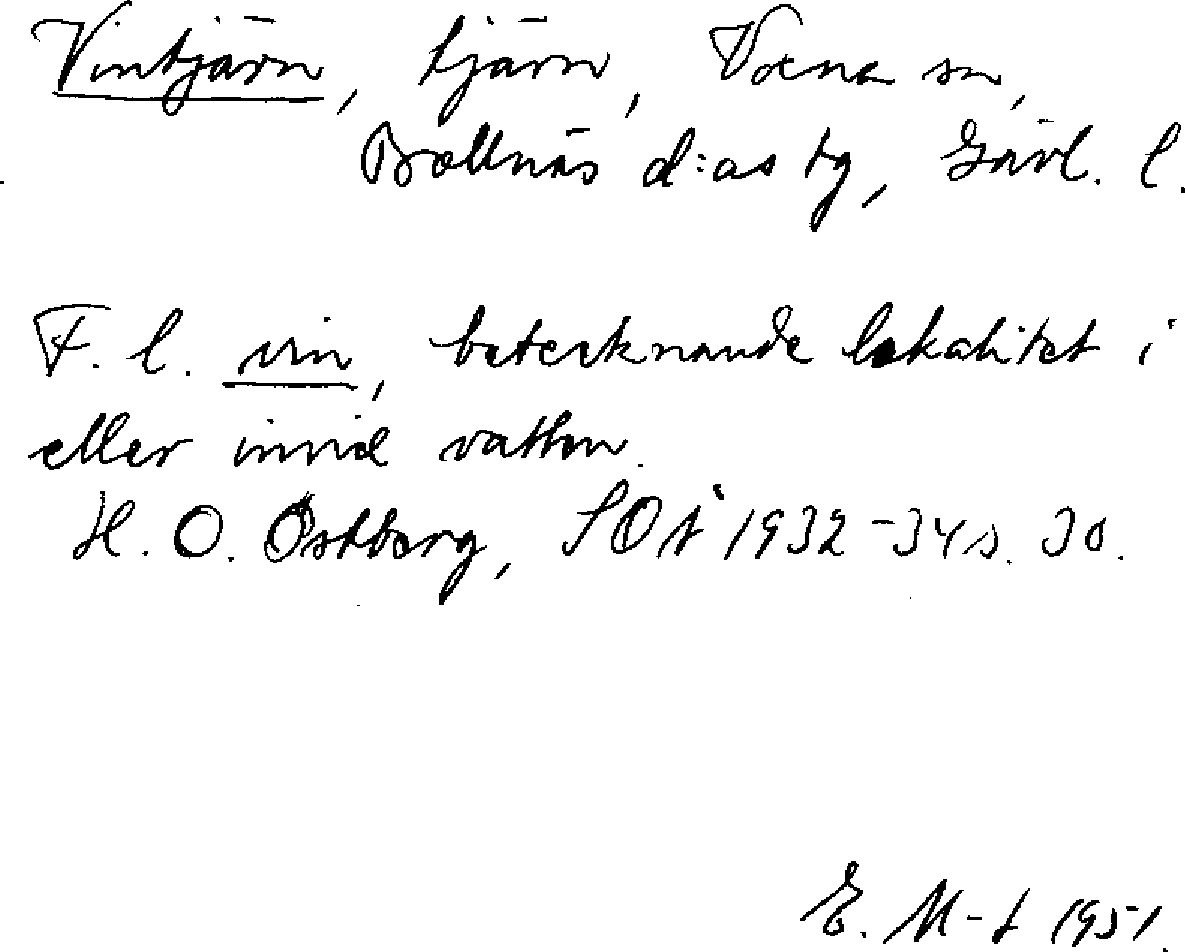 Vintjärn, tjärn, Voxna sn,
Bollnäs d:as tg, Gävl. l.
F. l. vin, betecknande lokalitet i
eller invid vatten.
H. O. Östberg, SOÅ 1932-34 s. 30.
E. M-t 1951.